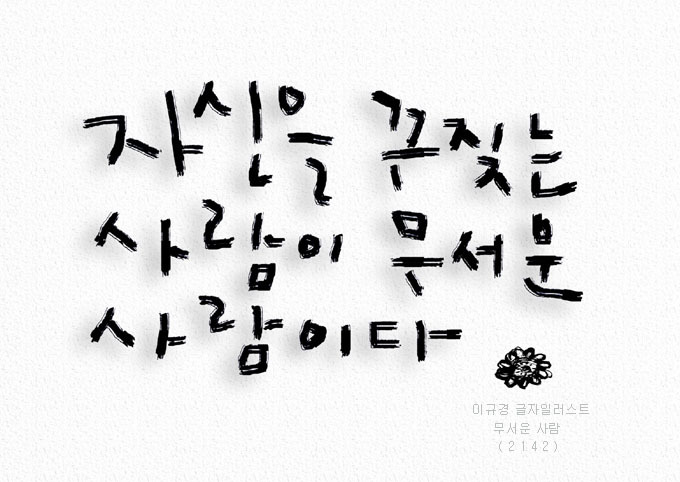 자신을 꾸짖는
사람이 무서운
사람이다
이규경 글자일러스트
무서운 사람
(2142)